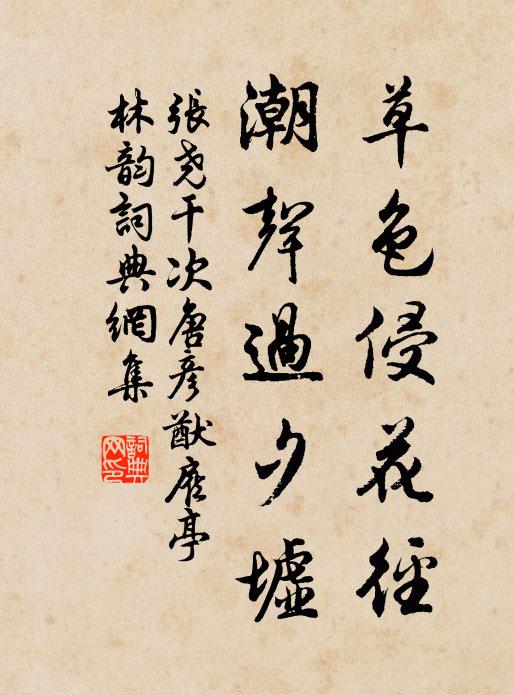 草色侵花徑
潮聲過夕墟
張堯干次唐彥猷廎亭
林韵詞典網集
詞典網印